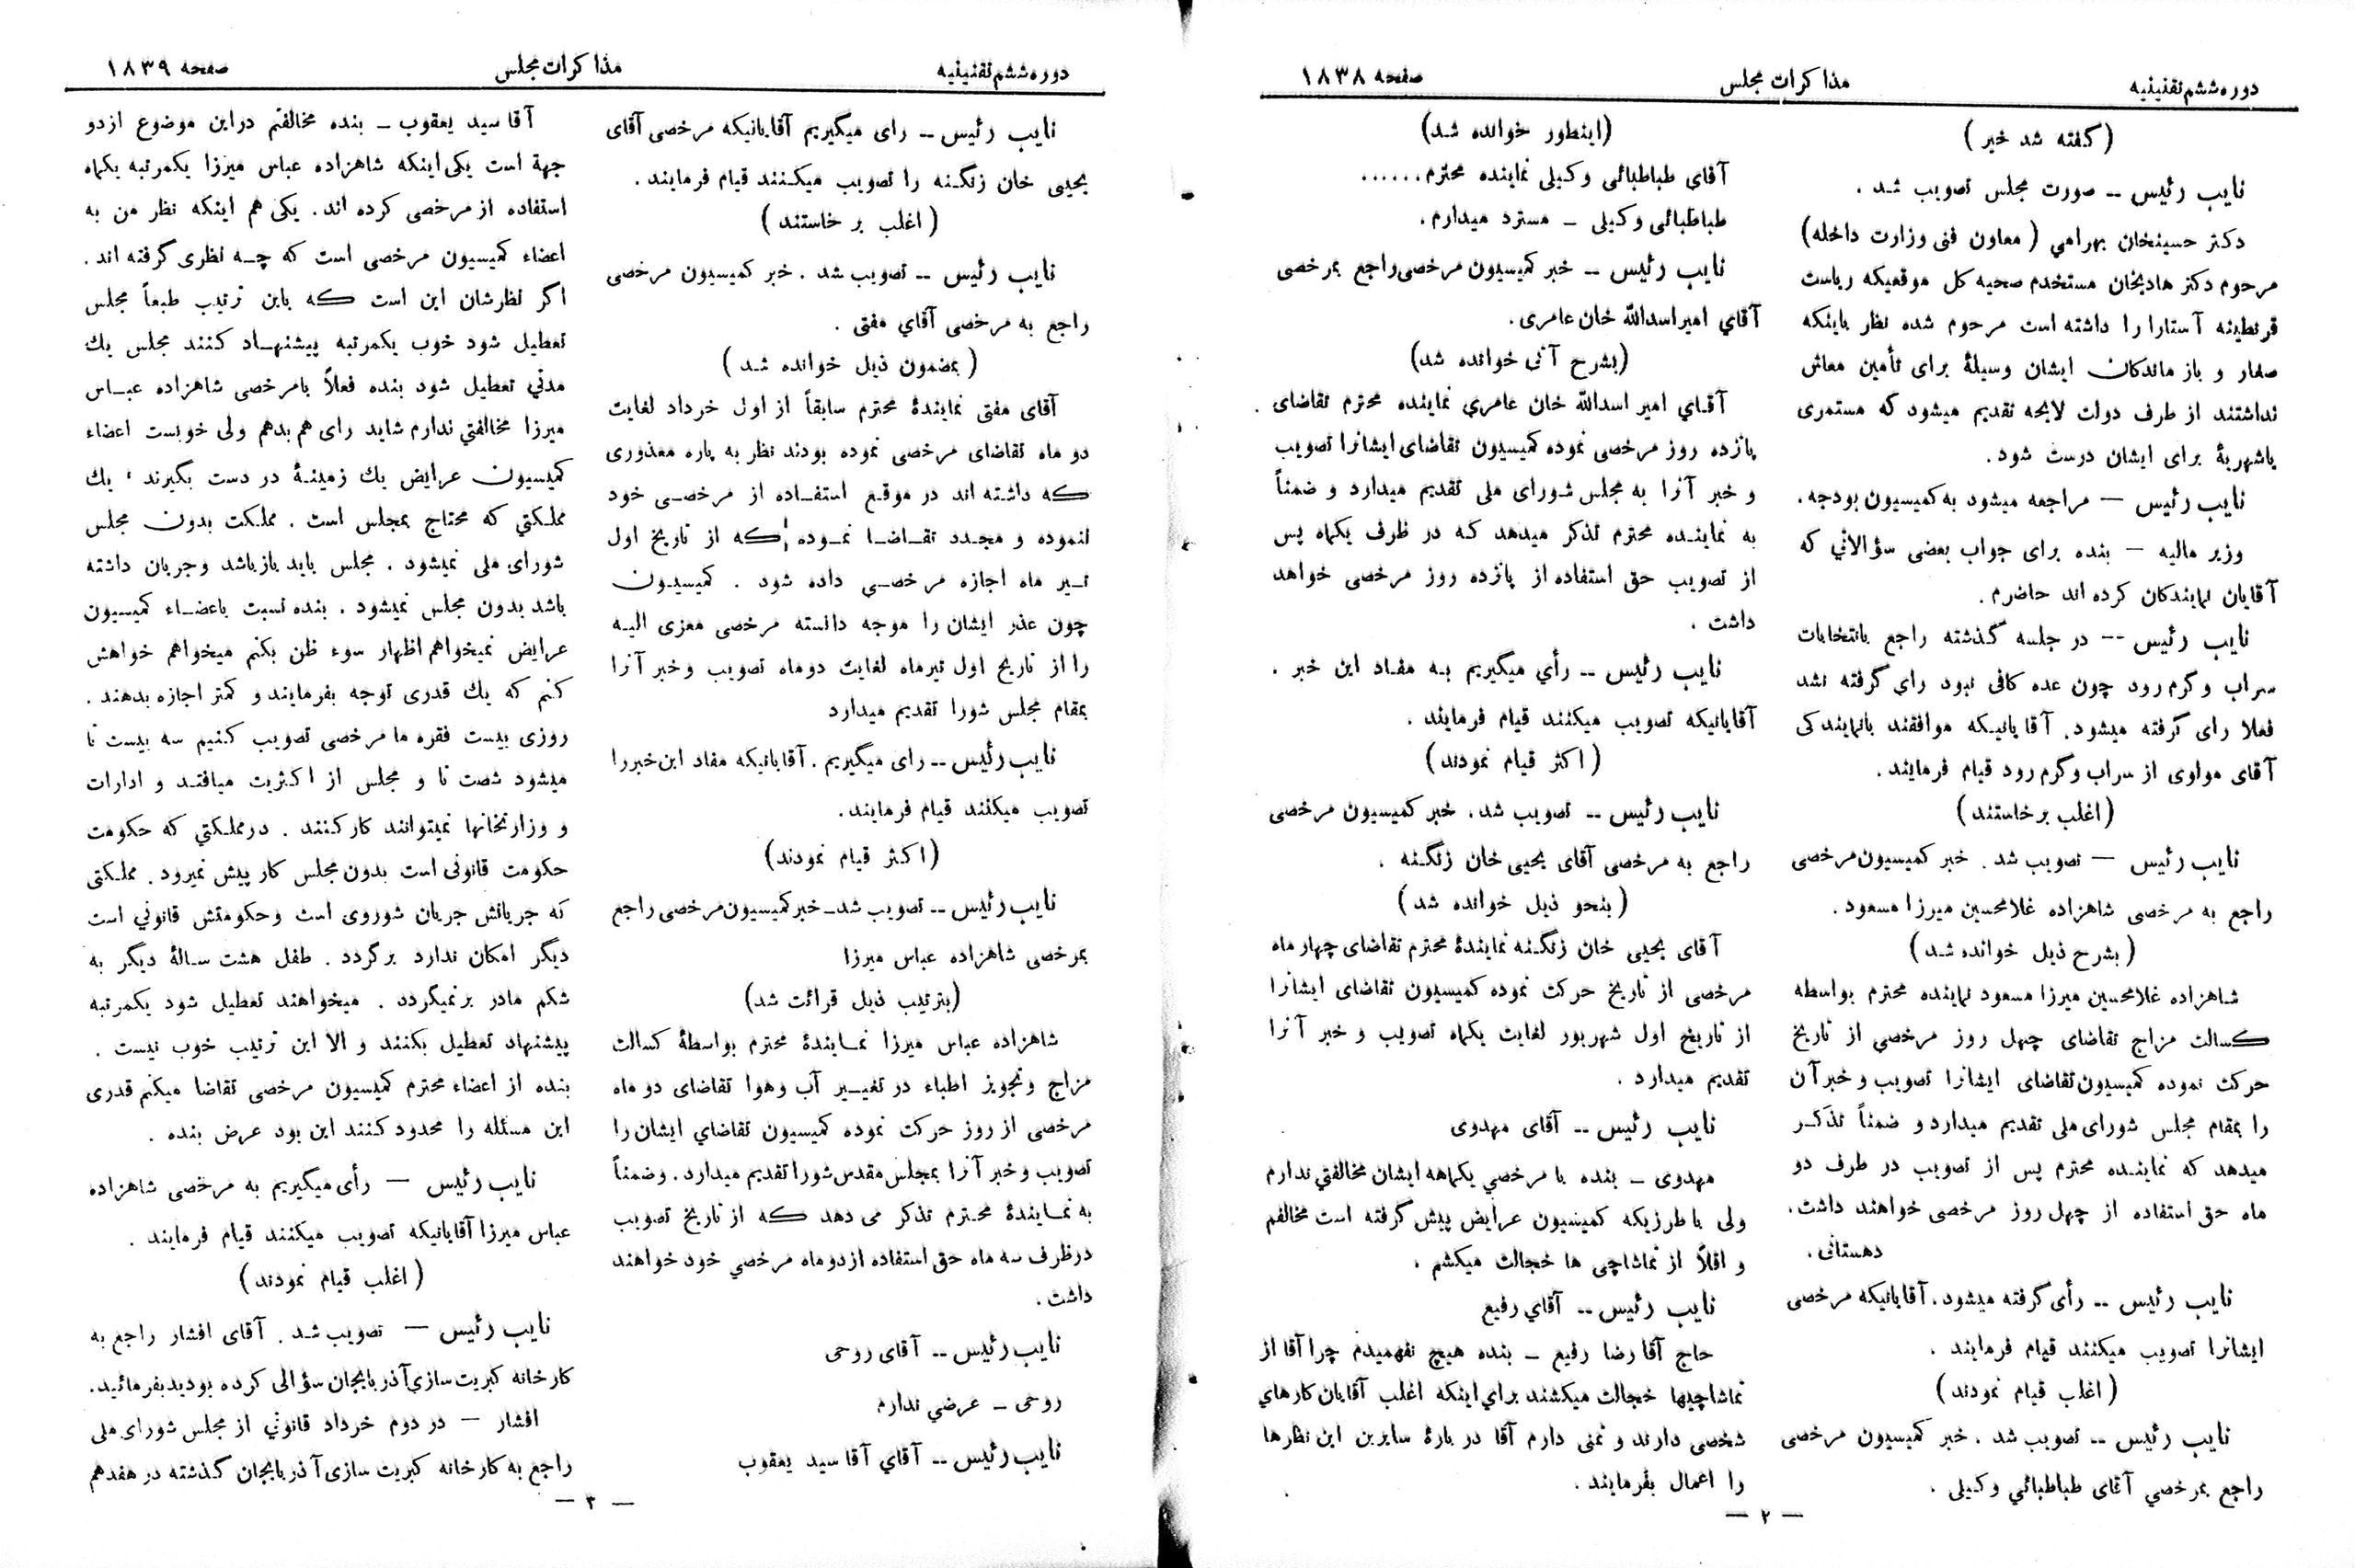 دوره ششم تقنینیه
مذاکرات مجلس
صفحه ۱۸۳۸
(گفته شد خیر)
نایب رئیس -- صورت مجلس تصویب شد .
دکتر حسینخان بهرامي (معاون فنی وزارت داخله)
مرحوم دکتر هادیخان مستخدم صحیه کل موقعیکه ریاست
قرنطینه آستارا را داشته است مرحوم شده نظر باینکه
صغار و باز ماندکان ایشان وسیلهٔ برای تأمین معاش
نداشتند از طرف دولت لایحه تقدیم میشود که مستمری
یاشهریهٔ برای ایشان درست شود.
نایب رئیس — مراجعه میشود به کمیسیون بودجه.
وزیر مالیه — بنده برای جواب بعضی سؤالاتي که
آقایان نمایندکان کرده اند حاضرم .
نایب رئیس -- در جلسه گذشته راجع بانتخابات
سراب و گرم رود چون عده کافی نبود رای گرفته نشد
فعلا رای گرفته میشود. آقایانیکه موافقند بانمایندکی
آقای مولوی از سراب و گرم رود قیام فرمایند.
(اغلب برخاستند)
نایب رئیس — تصویب شد . خبر کمیسیون مرخصی
راجع به مرخصی شاهزاده غلامحسین میرزا مسعود .
(بشرح ذیل خوانده شد)
شاهزاده غلامحسین میرزا مسعود نماینده محترم بواسطه
کسالت مزاج تقاضای چهل روز مرخصي از تاریخ
حرکت نموده کمیسیون تقاضای ایشانرا تصویب و خبر آن
را بمقام مجلس شورای ملی تقدیم میدارد و ضمناً تذکر
میدهد که نماینده محترم پس از تصویب در ظرف دو
ماه حق استفاده از چهل روز مرخصی خواهند داشت.
دهستانی .
نایب رئیس -- رأی گرفته میشود. آقایانیکه مرخصی
ایشانرا تصویب میکنند قیام فرمایند .
(اغلب قیام نمودند)
نایب رئیس -- تصویب شد . خبر کمیسیون مرخصی
راجع بمرخصي آقای طباطبائي وکیلی .
(اینطور خوانده شد)
آقای طباطبائی وکیلی نماینده محترم......
طباطبائی وکیلی – مسترد میدارم .
نایب رئیس -- خبر کمیسیون مرخصی راجع بمرخصی
آقاي امیراسدالله خان عامری.
(بشرح آتی خوانده شد)
آقاي امیر اسدالله خان عامري نماینده محترم تقاضای
پانزده روز مرخصی نموده کمیسیون تقاضای ایشانرا تصویب
و خبر آنرا به مجلس شورای ملی تقدیم میدارد و ضمناً
به نماینده محترم تذکر میدهد که در ظرف یکماه پس
از تصویب حق استفاده از پانزده روز مرخصی خواهد
داشت .
نایب رئیس -- رأي میگیریم به مفاد این خبر .
آقایانیکه تصویب میکنند قیام فرمایند .
(اکثر قیام نمودند)
نایب رئیس -- تصویب شد. خبر کمیسیون مرخصی
راجع به مرخصی آقای یحیی خان زنگنه .
(بنحو ذیل خوانده شد)
آقای یحیی خان زنگنه نمایندهٔ محترم تقاضای چهار ماه
مرخصی از تاریخ حرکت نموده کمیسیون تقاضای ایشانرا
از تاریخ اول شهریور لغایت یکماه تصویب و خبر آنرا
تقدیم میدارد .
نایب رئیس -- آقای مهدوی
مهدوی – بنده با مرخصي یکماهه ایشان مخالفتي ندارم
ولی با طرزیکه کمیسیون عرایض پیش گرفته است مخالفم
و اقلاً از تماشاچی ها خجالت میکشم .
نایب رئیس -- آقاي رفیع
حاج آقا رضا رفیع – بنده هیچ نفهمیدم چرا آقا از
تماشاچیها خجالت میکشند براي اینکه اغلب آقایان کارهاي
شخصی دارند و تمنی دارم آقا در بارهٔ سایرین این نظرها
را اعمال بفرمایند .
— ۲ —
دوره ششم تقنینیه
مذاکرات مجلس
صفحه ۱۸۳۹
نایب رئیس -- رای میگیریم آقایانیکه مرخصی آقای
یحیی خان زنگنه را تصویب میکنند قیام فرمایند .
(اغلب بر خاستند)
نایب رئیس -- تصویب شد . خبر کمیسیون مرخصی
راجع به مرخصی آقاي مفتی .
(بمضمون ذیل خوانده شد)
آقای مفتی نمایندهٔ محترم سابقاً از اول خرداد لغایت
دو ماه تقاضای مرخصی نموده بودند نظر به پاره معذوری
که داشته اند در موقع استفاده از مرخصی خود
ننموده و مجدد تقاضا نموده که از تاریخ اول
تیر ماه اجازه مرخصی داده شود . کمیسیون
چون عذر ایشان را موجه دانسته مرخصی معزی الیه
را از تاریخ اول تیرماه لغایت دوماه تصویب وخبر آنرا
بمقام مجلس شورا تقدیم میدارد
نایب رئیس -- رای میگیریم . آقایانیکه مفاد این خبر را
تصویب میکنند قیام فرمایند.
(اکثر قیام نمودند)
نایب رئیس -- تصویب شد – خبر کمیسیون مرخصی راجع
بمرخصی شاهزاده عباس میرزا
(بترتیب ذیل قرائت شد)
شاهزاده عباس میرزا نمایندهٔ محترم بواسطهٔ کسالت
مزاج وتجویز اطباء در تغییر آب وهوا تقاضای دو ماه
مرخصی از روز حرکت نموده کمیسیون تقاضاي ایشان را
تصویب و خبر آنرا بمجلس مقدس شورا تقدیم میدارد. وضمناً
به نمایندهٔ محترم تذکر می دهد که از تاریخ تصویب
درظرف سه ماه حق استفاده ازدوماه مرخصي خود خواهند
داشت .
نایب رئیس -- آقای روحی
روحی – عرضي ندارم
نایب رئیس -- آقاي آقا سید یعقوب
آقا سید یعقوب – بنده مخالفتم دراین موضوع ازدو
جهة است یکی اینکه شاهزاده عباس میرزا یکمرتبه یکماه
استفاده از مرخصی کرده اند. یکی هم اینکه نظر من به
اعضاء کمیسیون مرخصی است که چه نظری گرفته اند.
اگر نظرشان این است که باین ترتیب طبعاً مجلس
تعطیل شود خوب یکمرتبه پیشنهاد کنند مجلس یك
مدتي تعطیل شود بنده فعلاً بامرخصی شاهزاده عباس
میرزا مخالفتي ندارم شاید رای هم بدهم ولی خوبست اعضاء
کمیسیون عرایض یك زمینهٔ در دست بگیرند ، یك
مملکتي که محتاج بمجلس است . مملکت بدون مجلس
شورای ملی نمیشود . مجلس باید بازباشد وجریان داشته
باشد بدون مجلس نمیشود . بنده نسبت باعضاء کمیسیون
عرایض نمیخواهم اظهار سوء ظن بکنم میخواهم خواهش
کنم که یك قدری توجه بفرمایند و کمتر اجازه بدهند .
روزی بیست فقره ما مرخصی تصویب کنیم سه بیست تا
میشود شصت تا و مجلس از اکثریت میافتد و ادارات
و وزارتخانها نمیتوانند کارکنند . درمملکتي که حکومت
حکومت قانونی است بدون مجلس کار پیش نمیرود . مملکتی
که جریانش جریان شوروی است وحکومتش قانوني است
دیگر امکان ندارد برگردد . طفل هشت سالهٔ دیگر به
شکم مادر برنمیگردد . میخواهند تعطیل شود یکمرتبه
پیشنهاد تعطیل بکنند و الا این ترتیب خوب نیست .
بنده از اعضاء محترم کمیسیون مرخصی تقاضا میکنم قدری
این مسئله را محدود کنند این بود عرض بنده .
نایب رئیس — رأی میگیریم به مرخصی شاهزاده
عباس میرزا آقایانیکه تصویب میکنند قیام فرمایند .
(اغلب قیام نمودند)
نایب رئیس — تصویب شد . آقای افشار راجع به
کارخانه کبریت سازي آذربایجان سؤالی کرده بودید بفرمائید.
افشار — در دوم خرداد قانوني از مجلس شورای ملی
راجع به کارخانه کبریت سازی آذربایجان گذشته در هفدهم
— ۳ —